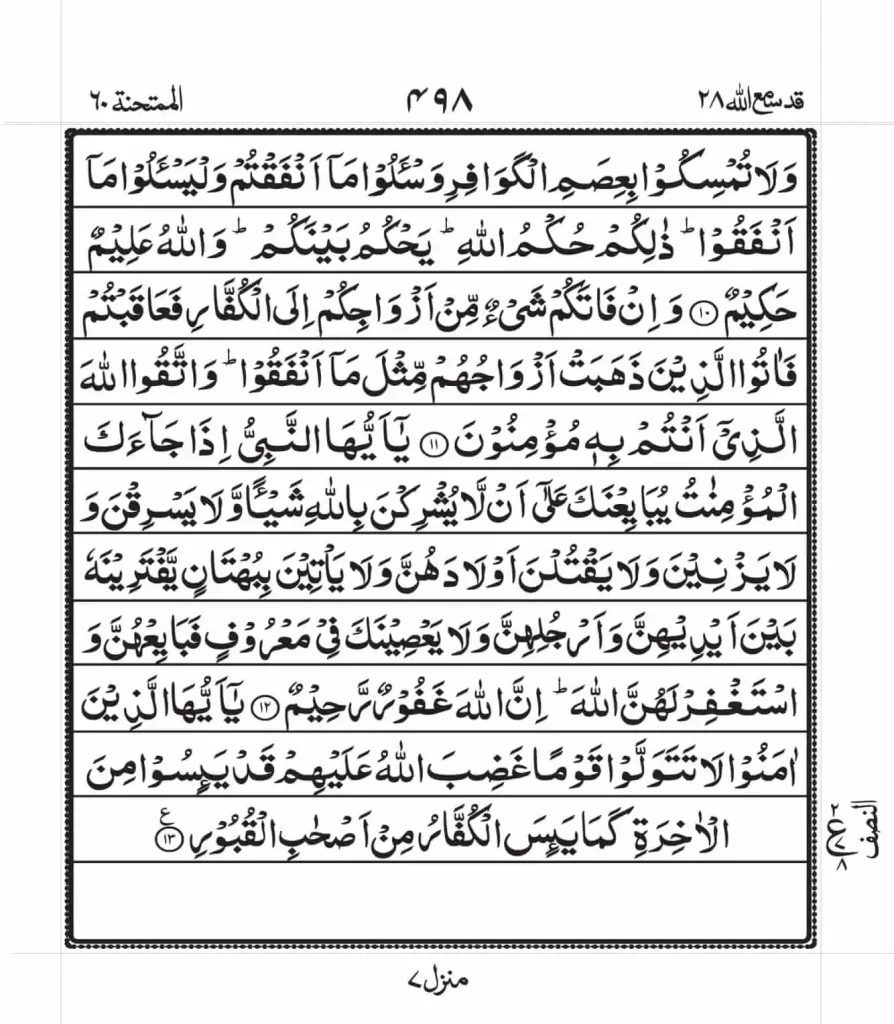 قد سمع الله ٢٨
٤٩٨
الممتحنة ٦٠
وَلَا تُمْسِكُوْا بِعِصَمِ الْكَوَافِرِ وَسْـَٔلُوْا مَآ اَنْفَقْتُمْ وَلْيَسْـَٔلُوْا مَآ
اَنْفَقُوْا ؕ ذٰلِكُمْ حُكْمُ اللّٰهِ ؕ يَحْكُمُ بَيْنَكُمْ ؕ وَاللّٰهُ عَلِيْمٌ
حَكِيْمٌ ۝١٠ وَاِنْ فَاتَكُمْ شَیْءٌ مِّنْ اَزْوَاجِكُمْ اِلَى الْكُفَّارِ فَعَاقَبْتُمْ
فَاٰتُوا الَّذِيْنَ ذَهَبَتْ اَزْوَاجُهُمْ مِّثْلَ مَآ اَنْفَقُوْا ؕ وَاتَّقُوا اللّٰهَ
الَّذِیْٓ اَنْتُمْ بِهٖ مُؤْمِنُوْنَ ۝١١ يٰٓاَيُّهَا النَّبِیُّ اِذَا جَآءَكَ
الْمُؤْمِنٰتُ يُبَايِعْنَكَ عَلٰٓى اَنْ لَّا يُشْرِكْنَ بِاللّٰهِ شَيْـًٔا وَّلَا يَسْرِقْنَ وَ
لَا يَزْنِيْنَ وَلَا يَقْتُلْنَ اَوْلَادَهُنَّ وَلَا يَاْتِيْنَ بِبُهْتَانٍ يَّفْتَرِيْنَهٗ
بَيْنَ اَيْدِيْهِنَّ وَاَرْجُلِهِنَّ وَلَا يَعْصِيْنَكَ فِیْ مَعْرُوْفٍ فَبَايِعْهُنَّ وَ
اسْتَغْفِرْ لَهُنَّ اللّٰهَ ؕ اِنَّ اللّٰهَ غَفُوْرٌ رَّحِيْمٌ ۝١٢ يٰٓاَيُّهَا الَّذِيْنَ
اٰمَنُوْا لَا تَتَوَلَّوْا قَوْمًا غَضِبَ اللّٰهُ عَلَيْهِمْ قَدْ يَىِٕسُوْا مِنَ
الْاٰخِرَةِ كَمَا يَىِٕسَ الْكُفَّارُ مِنْ اَصْحٰبِ الْقُبُوْرِ ۝١٣ ع
النصف
٢ ع ٧ ٨
منزل ٧